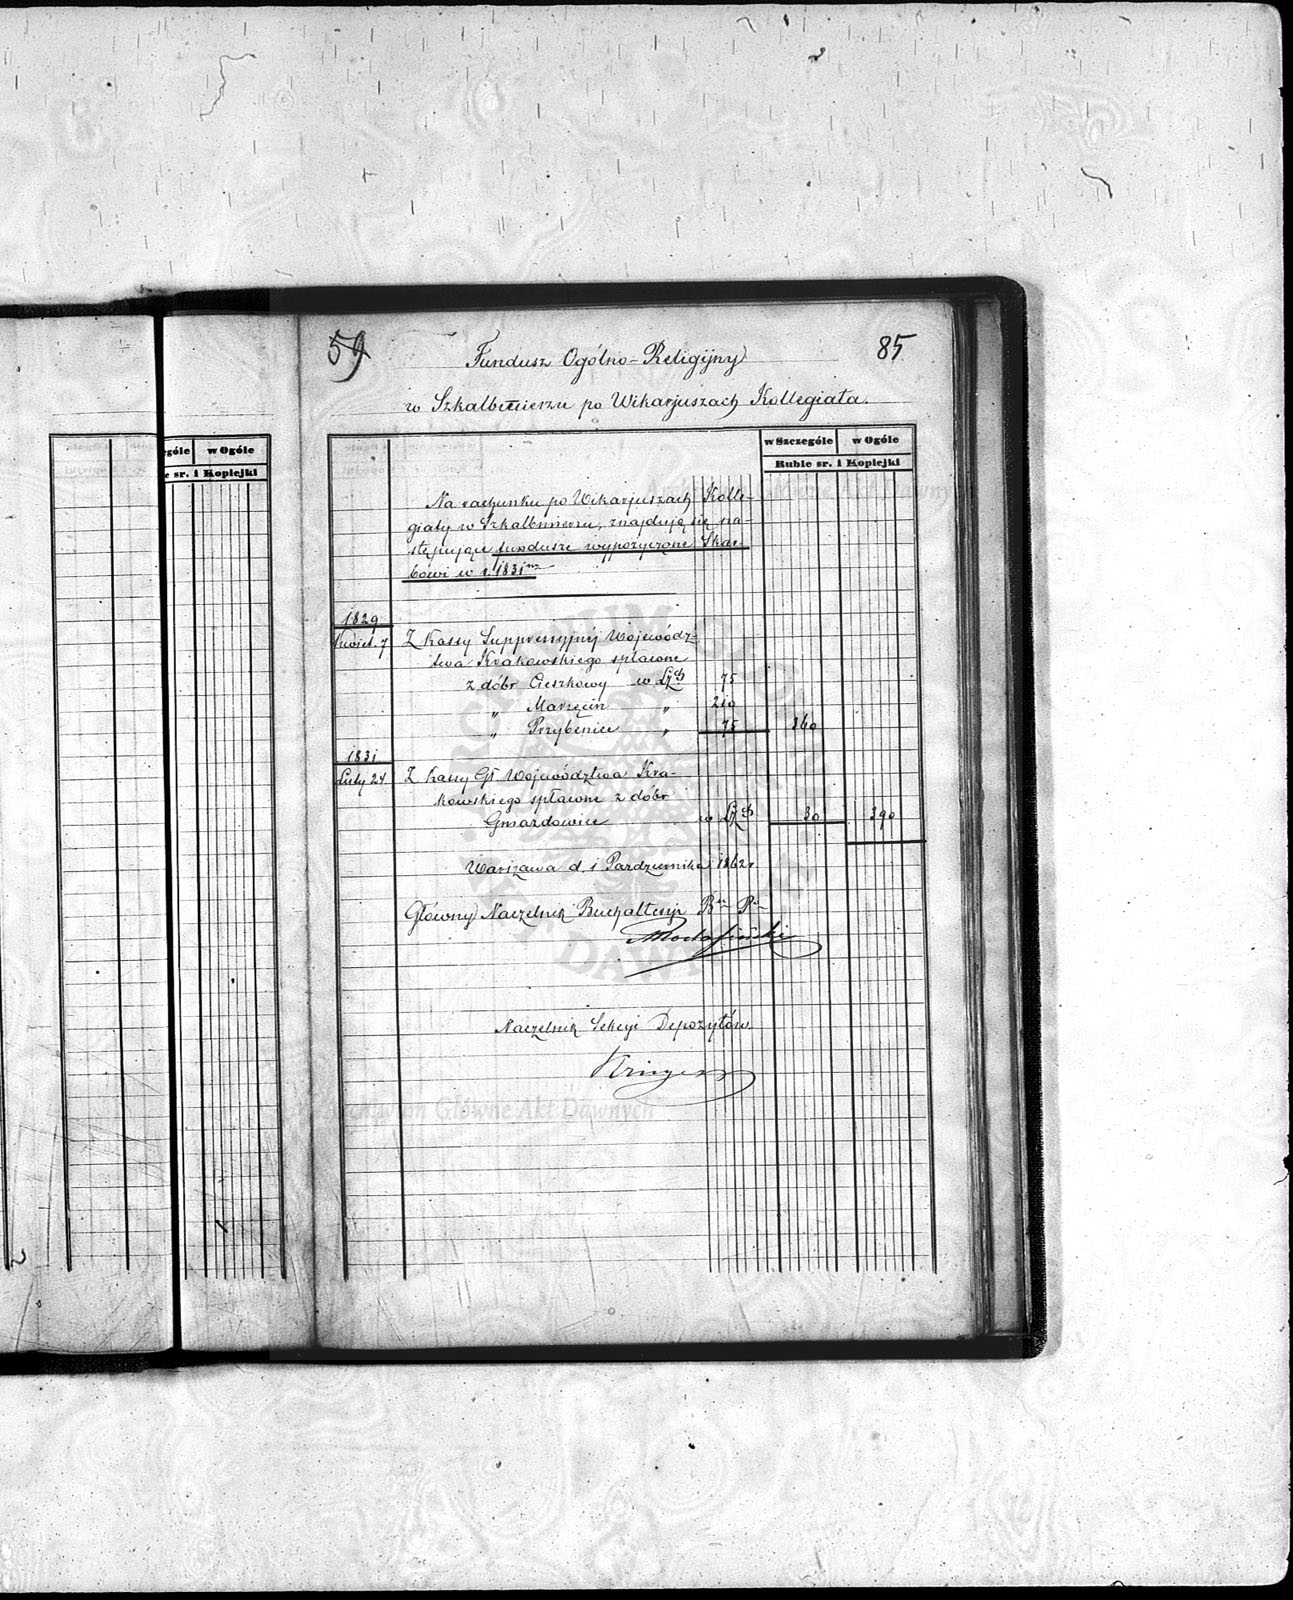 59 85
Fundusz Ogólno-Religijny
w Szkalbmierzu po Wikarjuszach Kollegiata.
w Ogóle
w Szczególe w Ogóle
Ruble sr. i Kopiejki
sr. i Kopiejki
Na rachunku po Wikarjuszach Kolle-
giaty w Szkalbmierzu, znajdują się na-
stępujące fundusze wypożyczone Skar-
bowi w r. 1831
1829
Kwiet. 7 Z Kassy Suppressyjnéj Wojewódz-
twa Krakowskiego spłacone
z dóbr Cieszkowy w 75
„ Marzęcin „ 210
„ Przybenice „ 75 360
1831
Luty 24 Z Kassy Gł. Województwa Kra-
kowskiego spłacone z dóbr
Gniazdowice w 30 390
Warszawa d. 1 Pazdziernika 1862 r.
Główny Naczelnik Buchalteryi
Naczelnik Sekcyi Depozytów
Archiwum Główne Akt Dawnych